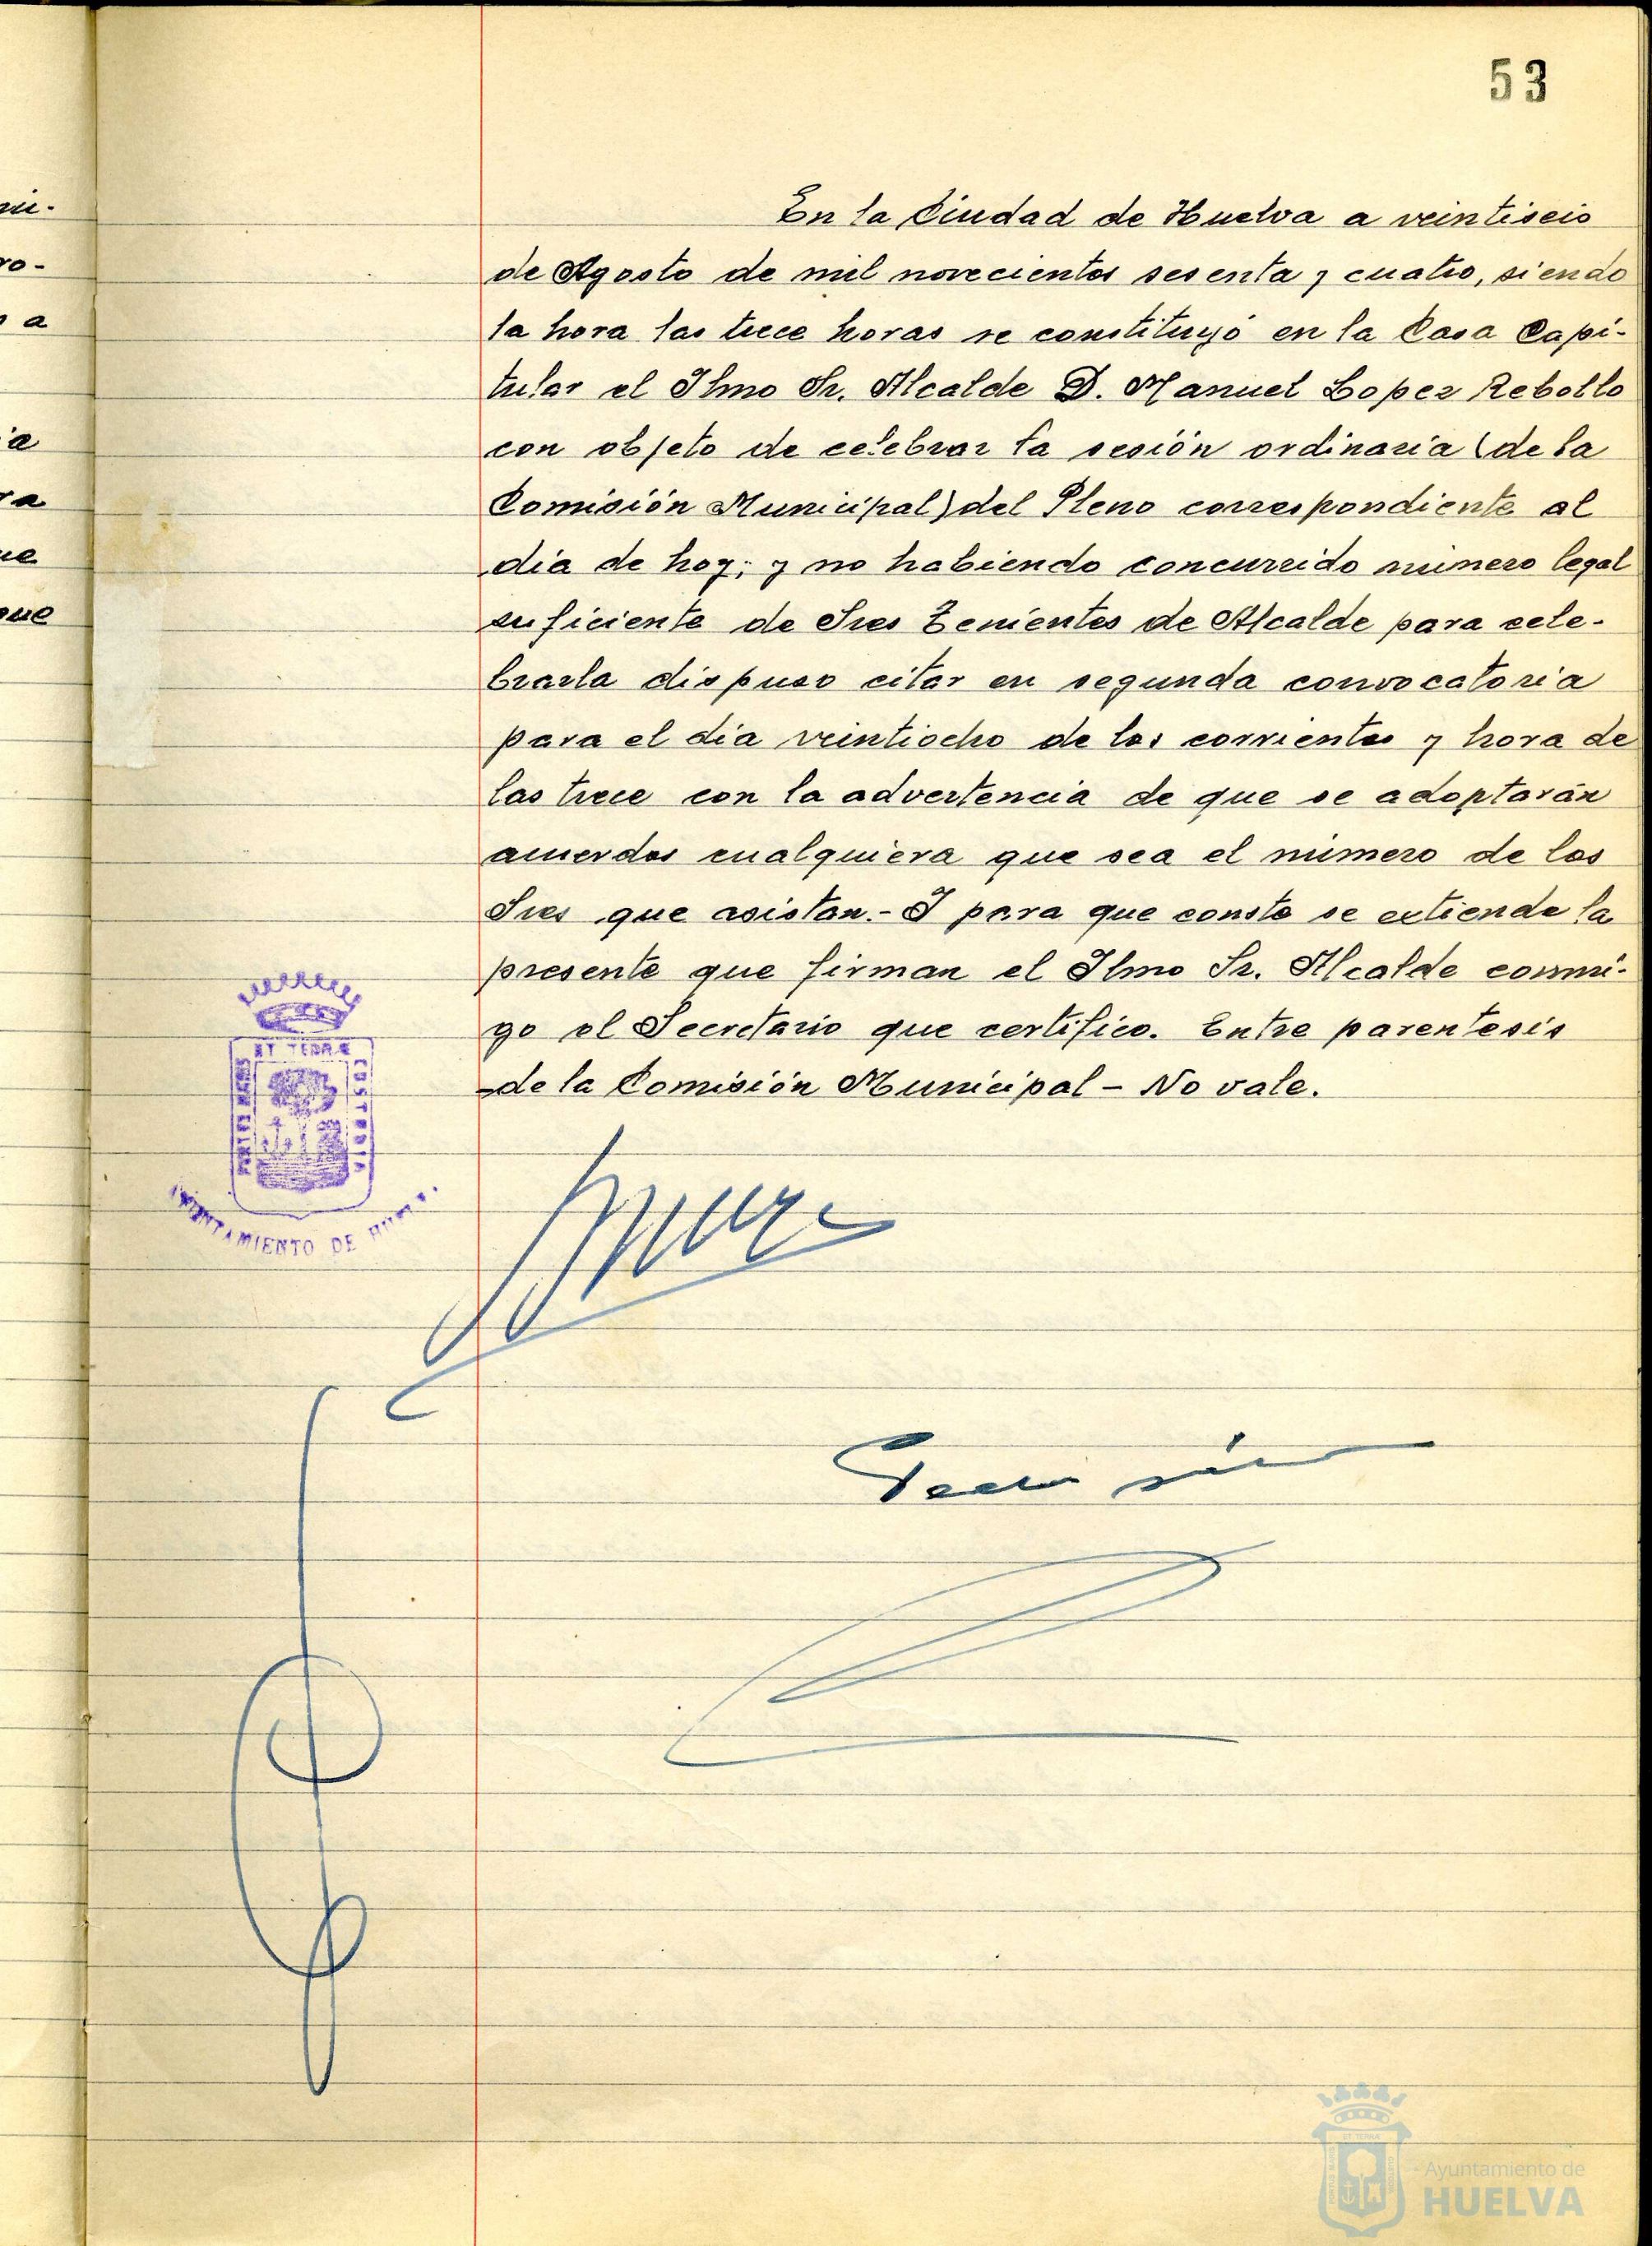 53
En la Ciudad de Huelva a veintiseis
de Agosto de mil novecientos sesenta y cuatro, siendo
la hora las trece horas se constituyó en la Casa Capi-
tular el Ilmo Sr. Alcalde D. Manuel Lopez Rebollo
con objeto de celebrar la sesión ordinaria (de la
Comisión Municipal) del Pleno correspondiente al
día de hoy; y no habiendo concurrido número legal
suficiente de Sres Tenientes de Alcalde para cele-
brarla dispuso citar en segunda convocatoria
para el día veintiocho de los corrientes y hora de
las trece con la advertencia de que se adoptarán
acuerdos cualquiera que sea el número de los
Sres que asistan.- I para que conste se extiende la
presente que firman el Ilmo Sr. Alcalde conmi-
go el Secretario que certifico. Entre parentesis
-de la Comisión Municipal - No vale.
PORTUS MARIS
ET TERRÆ
CUSTODIA
AYUNTAMIENTO DE HUELVA
Ayuntamiento de
HUELVA